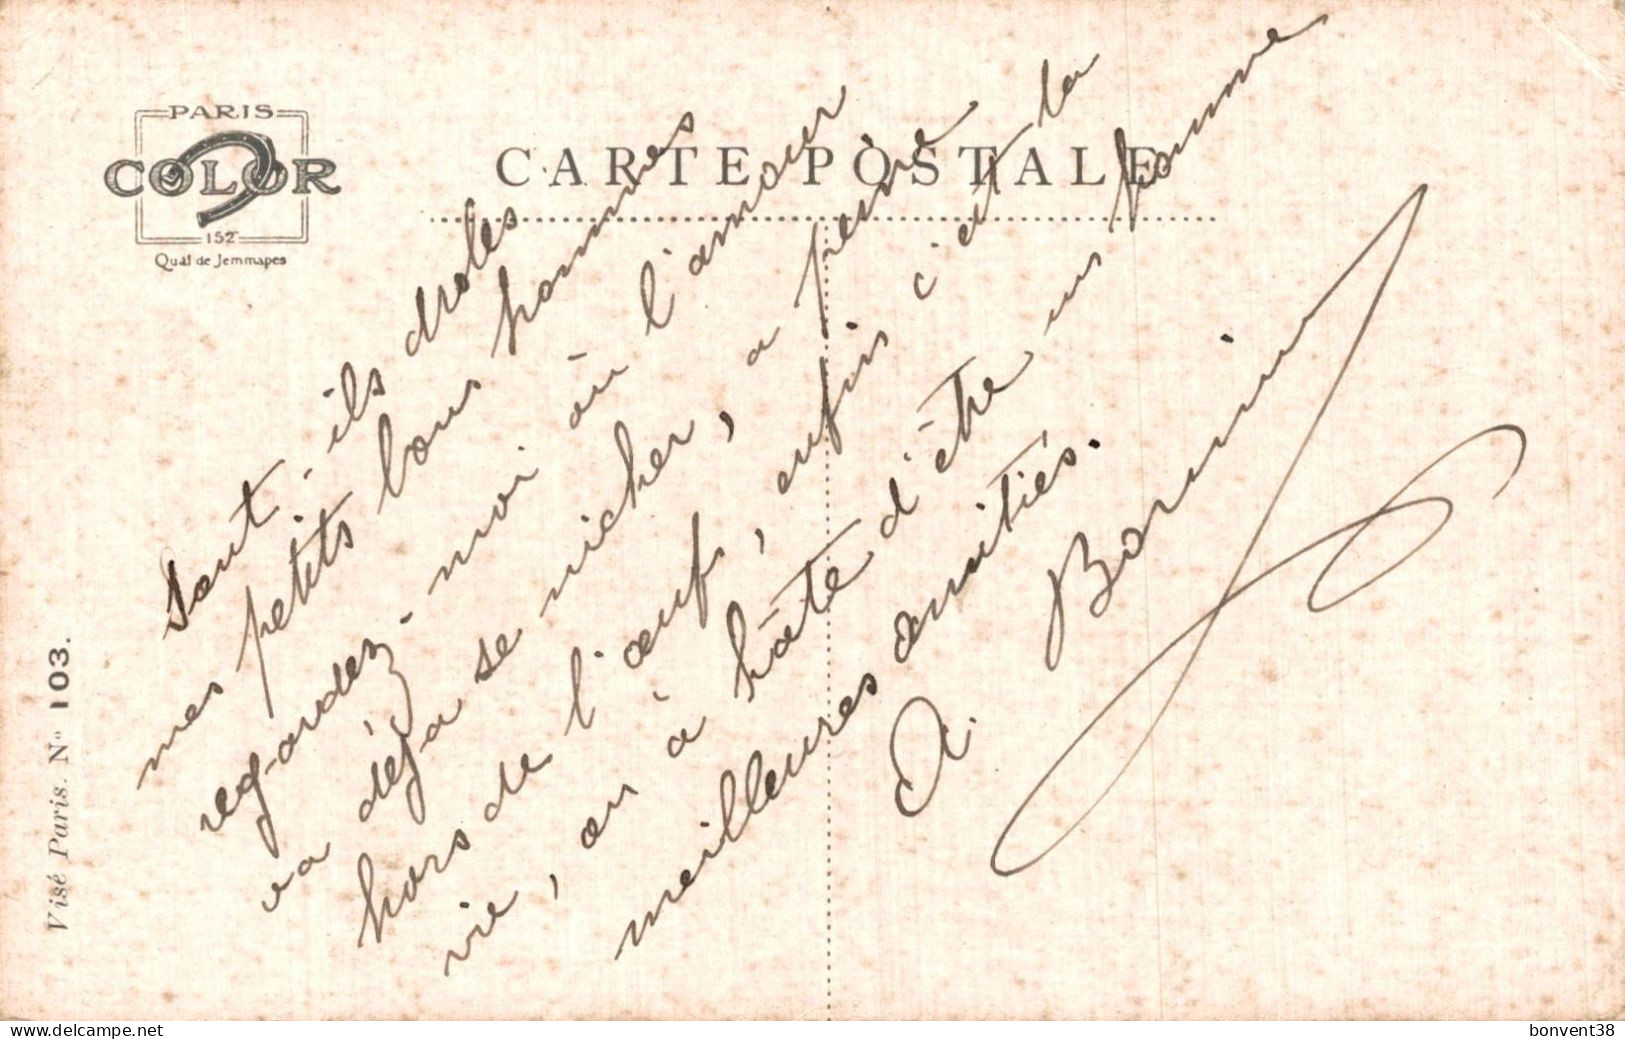 PARIS
COLOR
152
Quai de Jemmapes
CARTE POSTALE
Visé Paris. N° 103.
Sont-ils drôles
mes petits bons hommes
regardez-moi où l'amour
va déja se nicher, a peine
hors de l'œuf, enfin c'est la
vie, on à hâte d'être un homme
meilleures amitiés.
A.
https://www.delcampe.net
bonvent38